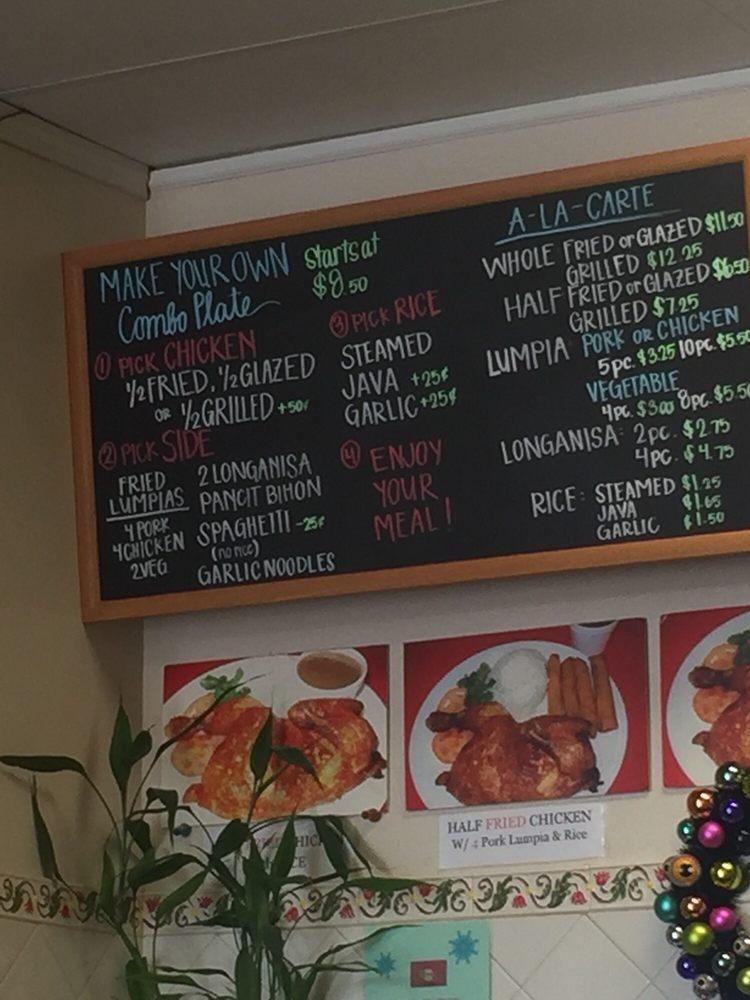 MAKE YOUR OWN
Combo Plate
Starts at
$8.50
① PICK CHICKEN
½ FRIED, ½ GLAZED
OR ½ GRILLED +50¢
② PICK SIDE
FRIED
LUMPIAS
4 PORK
4 CHICKEN
2 VEG
2 LONGANISA
PANCIT BIHON
SPAGHETTI -25¢
(no rice)
GARLIC NOODLES
③ PICK RICE
STEAMED
JAVA +25¢
GARLIC +25¢
④ ENJOY
YOUR
MEAL!
A-LA-CARTE
WHOLE FRIED or GLAZED $11.50
GRILLED $12.25
HALF FRIED or GLAZED $6.50
GRILLED $7.25
LUMPIA PORK OR CHICKEN
5pc. $3.25 10pc. $5.50
VEGETABLE
4pc. $3.00 8pc. $5.50
LONGANISA: 2pc. $2.75
4pc. $4.75
RICE: STEAMED $1.25
JAVA $1.65
GARLIC $1.50
HALF FRIED CHICKEN
W/ 4 Pork Lumpia & Rice